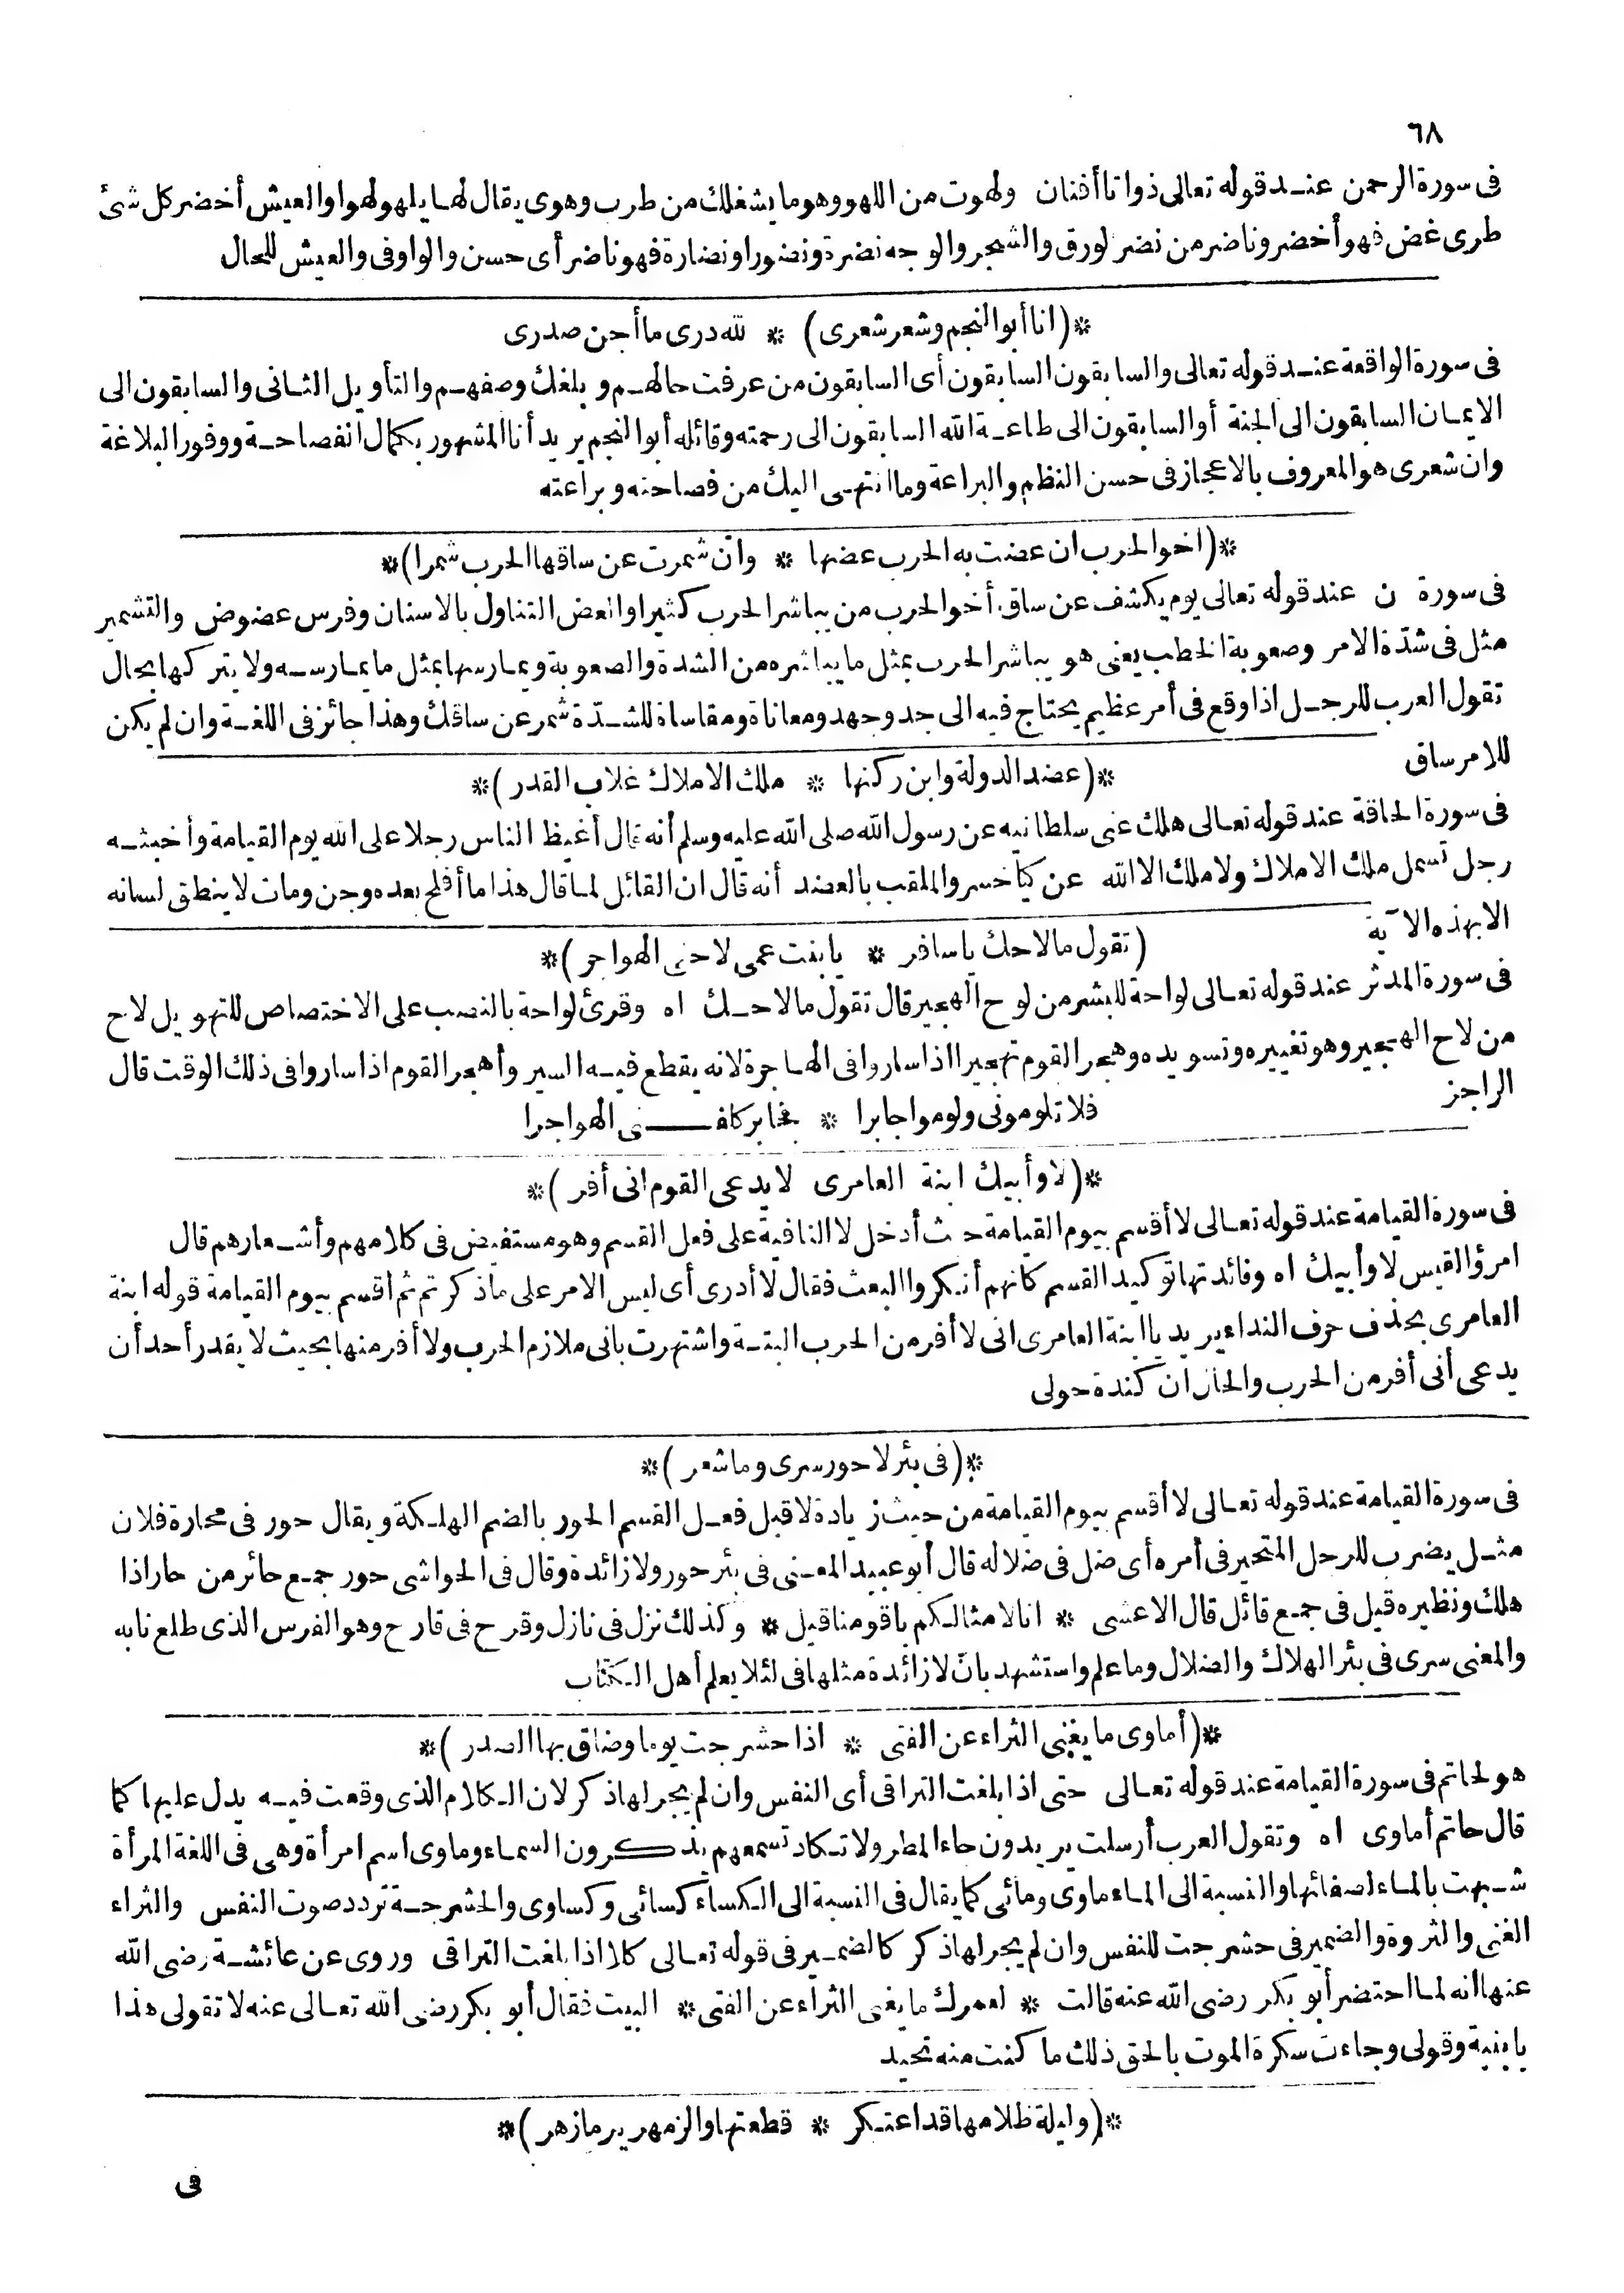 ٦٨
فى سورة الرحمن عند قوله تعالى ذواتا أفنان ولهوت من اللهو وهو ما يشغلك من طرب وهوى يقال لها يلهو لهوا والعيش أخضر كل شئ
طرى غض فهو أخضر وناضر من نضر لورق والشجر والوجه نضرة ونضورا ونضارة فهو ناضر أى حسن والواو فى والعيش للحال
*(انا أبو النجم وشعرى شعرى) * لله درى ما أجن صدرى
فى سورة الواقعة عند قوله تعالى والسابقون السابقون أى السابقون من عرفت حالهم وبلغك وصفهم والتأويل الثانى والسابقون الى
الايمان السابقون الى الجنة أو السابقون الى طاعة الله السابقون الى رحمته وقائله أبو النجم يريد أنا المشهور بكمال الفصاحة ووفور البلاغة
وان شعرى هو المعروف بالاعجاز فى حسن النظم والبراعة وما انتهى اليك من فصاحته وبراعته
*(اخو الحرب ان عضت به الحرب عضها * وان شمرت عن ساقها الحرب شمرا)*
فى سورة ن عند قوله تعالى يوم يكشف عن ساق أخو الحرب من يباشر الحرب كثيرا والعض التناول بالاسنان وفرس عضوض والتشمير
مثل فى شدّة الامر وصعوبة الخطب يعنى هو يباشر الحرب بمثل ما يباشره من الشدة والصعوبة ويمارسها بمثل ما يمارسه ولا يتركها بحال
تقول العرب للرجل اذا وقع فى أمر عظيم يحتاج فيه الى جد وجهد ومعاناة ومقاساة للشدّة شمر عن ساقك وهذا جائز فى اللغة وان لم يكن
للامر ساق
*(عضد الدولة وابن ركنها * ملك الاملاك غلاب القدر)*
فى سورة الحاقة عند قوله تعالى هلك عنى سلطانيه عن رسول الله صلى الله عليه وسلم أنه قال أغيظ الناس رجلا على الله يوم القيامة وأخبثه
رجل تسمى ملك الاملاك ولا ملك الا الله عن كياخسرو الملقب بالعضد أنه قال ان القائل لما قال هذا ما أفلح بعده وجن ومات لا ينطق لسانه
الا بهذه الآية
(تقول ما لاحك يا مسافر * يا بنت عمى لاحنى الهواجر)*
فى سورة المدثر عند قوله تعالى لواحة للبشر من لوح الهجير قال تقول ما لاحك اه وقرئ لواحة بالنصب على الاختصاص للتهويل لاح
من لاح الهجير وهو تغييره وتسويده وهجر القوم تهجيرا اذا ساروا فى الهاجرة لانه يقطع فيه السير وأهجر القوم اذا ساروا فى ذلك الوقت قال
الراجز
فلا تلومونى ولوموا جابرا * فجابر كلفنى الهواجرا
*(لا وأبيك ابنة العامرى لا يدعى القوم انى أفر)*
فى سورة القيامة عند قوله تعالى لا أقسم بيوم القيامة حيث أدخل لا النافية على فعل القسم وهو مستفيض فى كلامهم وأشعارهم قال
امرؤ القيس لا وأبيك اه وفائدتها توكيد القسم كانهم أنكروا البعث فقال لا أدرى أى ليس الامر على ما ذكرتم ثم أقسم بيوم القيامة قوله ابنة
العامرى بحذف حرف النداء يريد يا ابنة العامرى انى لا أفر من الحرب البتة واشتهرت بانى ملازم الحرب ولا أفر منها بحيث لا يقدر أحد أن
يدعى أنى أفر من الحرب والحال ان كندة حولى
*(فى بئر لا حور سرى وما شعر)*
فى سورة القيامة عند قوله تعالى لا أقسم بيوم القيامة من حيث زيادة لا قبل فعل القسم الحور بالضم الهلكة ويقال حور فى محارة فلان
مثل يضرب للرجل المتحير فى أمره أى ضل فى ضلاله قال أبو عبيد المعنى فى بئر حور ولا زائدة وقال فى الحواشى حور جمع حائر من حار اذا
هلك ونظيره قيل فى جمع قائل قال الاعشى * انا لامثالكم ياقومنا قيل * وكذلك نزل فى نازل وقرح فى قارح وهو الفرس الذى طلع نابه
والمعنى سرى فى بئر الهلاك والضلال وما علم واستشهد بانّ لا زائدة مثلها فى لئلا يعلم أهل الكتاب
*(أماوى ما يغنى الثراء عن الفتى * اذا حشرجت يوما وضاق بها الصدر)*
هو لحاتم فى سورة القيامة عند قوله تعالى حتى اذا بلغت التراقى أى النفس وان لم يجر لها ذكر لان الكلام الذى وقعت فيه يدل عليها كما
قال حاتم أماوى اه وتقول العرب أرسلت يريدون جاء المطر ولا تكاد تسمعهم يذكرون السماء وماوى اسم امرأة وهى فى اللغة المرأة
شبهت بالماء لصفائها والنسبة الى الماء ماوى ومائى كما يقال فى النسبة الى الكساء كسائى وكساوى والحشرجة تردد صوت النفس والثراء
الغنى والثروة والضمير فى حشرجت للنفس وان لم يجر لها ذكر كالضمير فى قوله تعالى كلا اذا بلغت التراقى وروى عن عائشة رضى الله
عنها أنه لما احتضر أبو بكر رضى الله عنه قالت * لعمرك ما يغنى الثراء عن الفتى * البيت فقال أبو بكر رضى الله تعالى عنه لا تقولى هذا
يا بنية وقولى وجاءت سكرة الموت بالحق ذلك ما كنت منه تحيد
*(وليلة ظلامها قد اعتكر * قطعتها والزمهرير ما زهر)*
فى